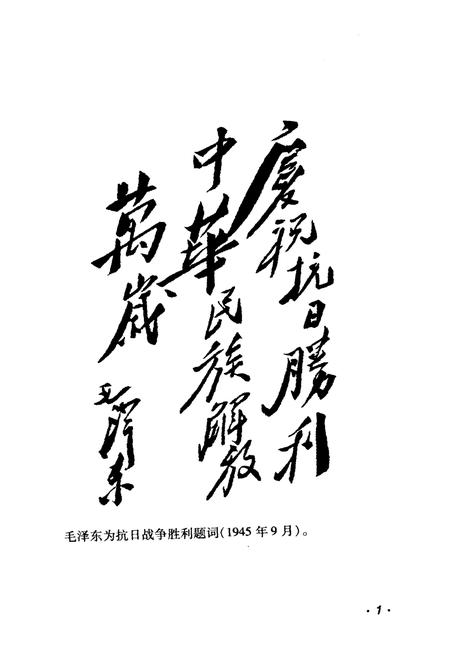 慶祝抗日勝利
中華民族解放
萬歲
毛澤东
毛泽东为抗日战争胜利题词(1945年9月)。
·1·